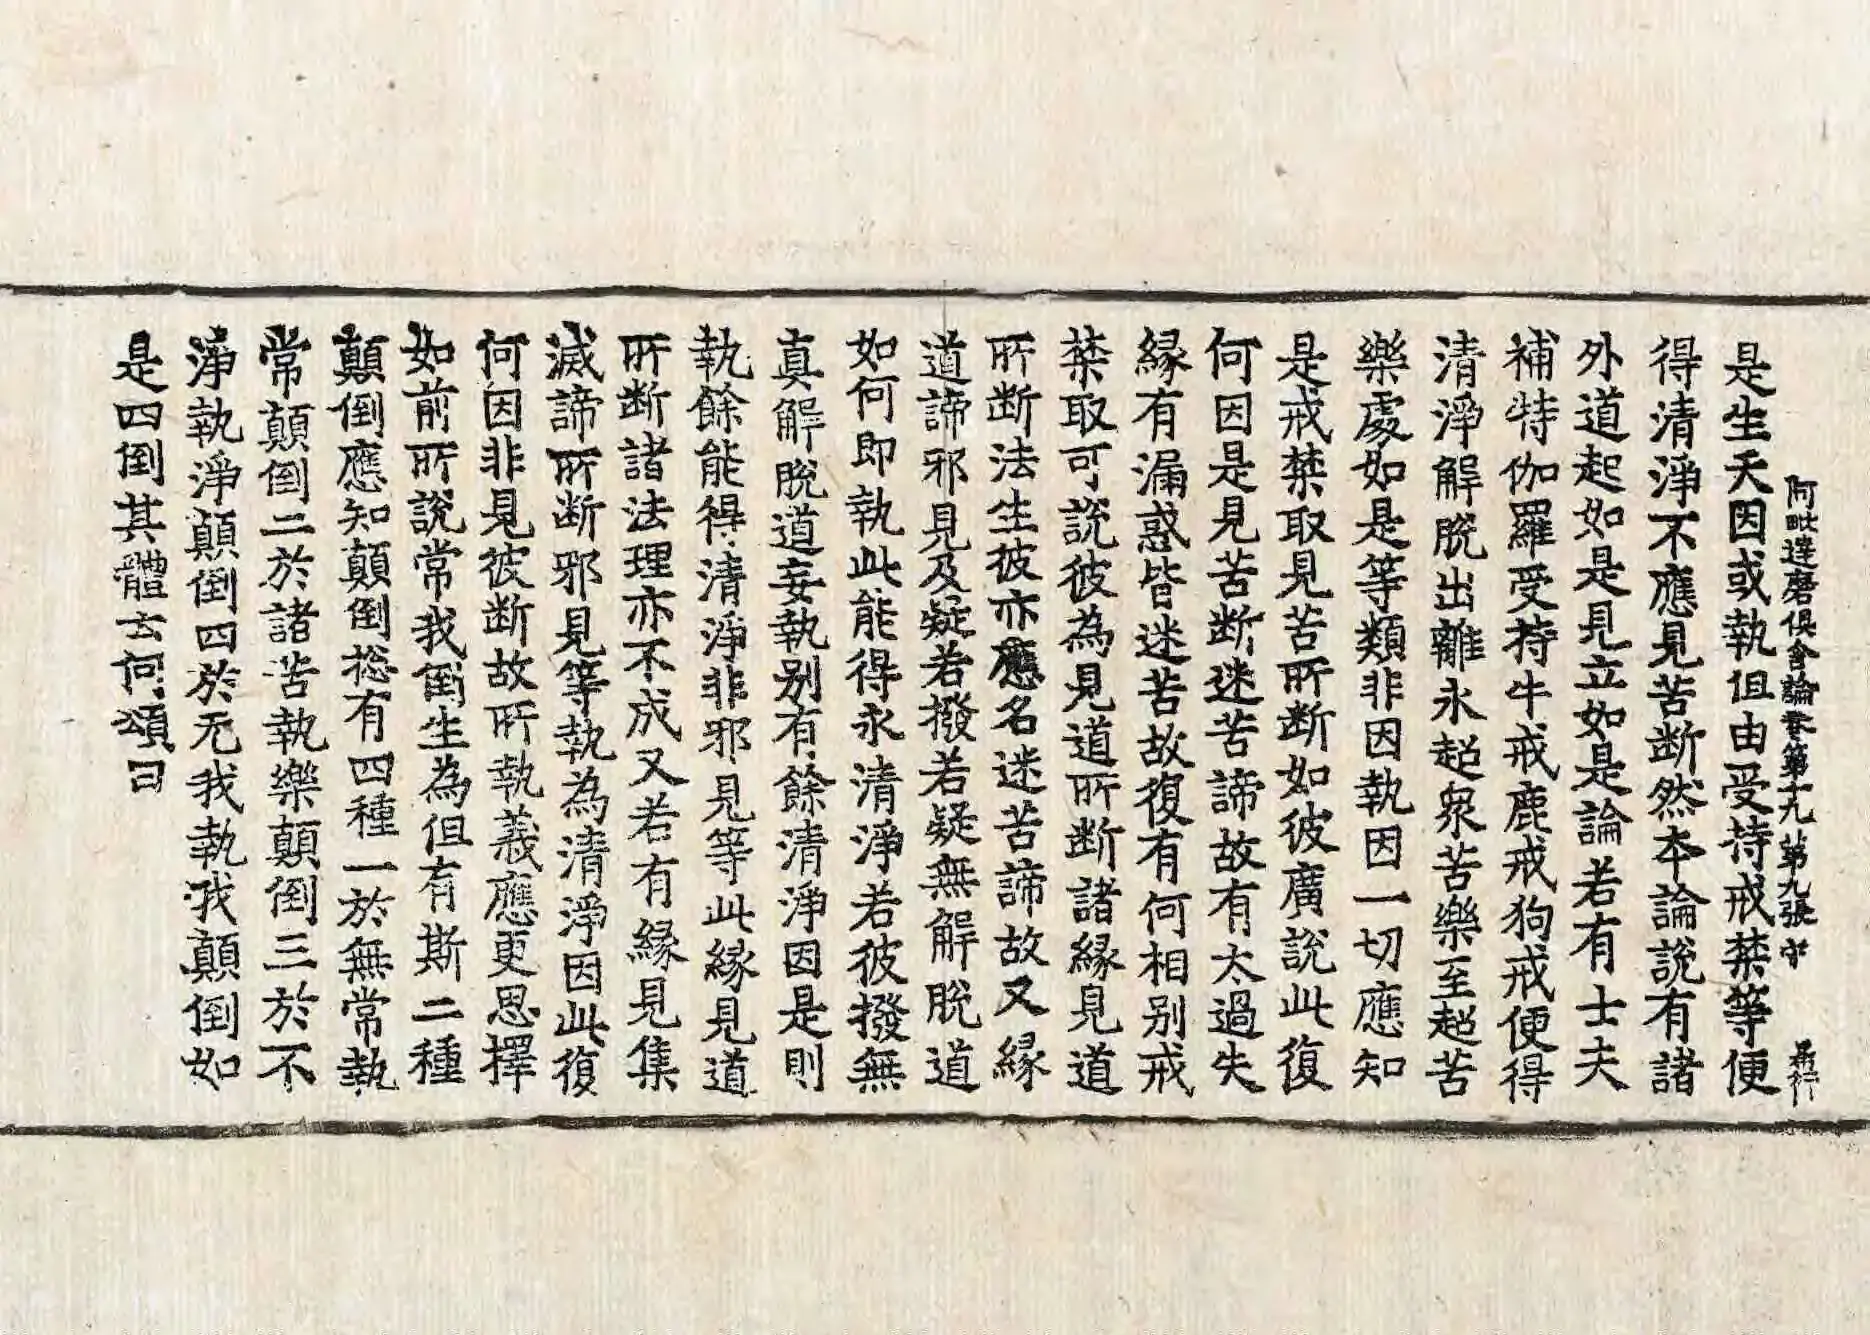 阿毗達磨俱舍論卷第十九 第九張 㐀
是生天因或執但由受持戒禁等便
得清淨不應見苦断然本論說有諸
外道起如是見立如是論若有士夫
補特伽羅受持牛戒鹿戒狗戒便得
清淨解脫出離永超衆苦樂至超苦
樂處如是等類非因執因一切應知
是戒禁取見苦所断如彼廣說此復
何因是見苦断迷苦諦故有太過失
緣有漏惑皆迷苦故復有何相別戒
禁取可說彼為見道所断諸緣見道
所断法生彼亦應名迷苦諦故又緣
道諦邪見及疑若撥若疑無解脫道
如何即執此能得永清淨若彼撥無
真解脫道妄執別有餘清淨因是則
執餘能得清淨非邪見等此緣見道
所断諸法理亦不成又若有緣見集
滅諦所断邪見等執為清淨因此復
何因非見彼断故所執義應更思擇
如前所說常我倒生為但有斯二種
顛倒應知顛倒捴有四種一於無常執
常顛倒二於諸苦執樂顛倒三於不
淨執淨顛倒四於无我執我顛倒如
是四倒其體云何頌曰